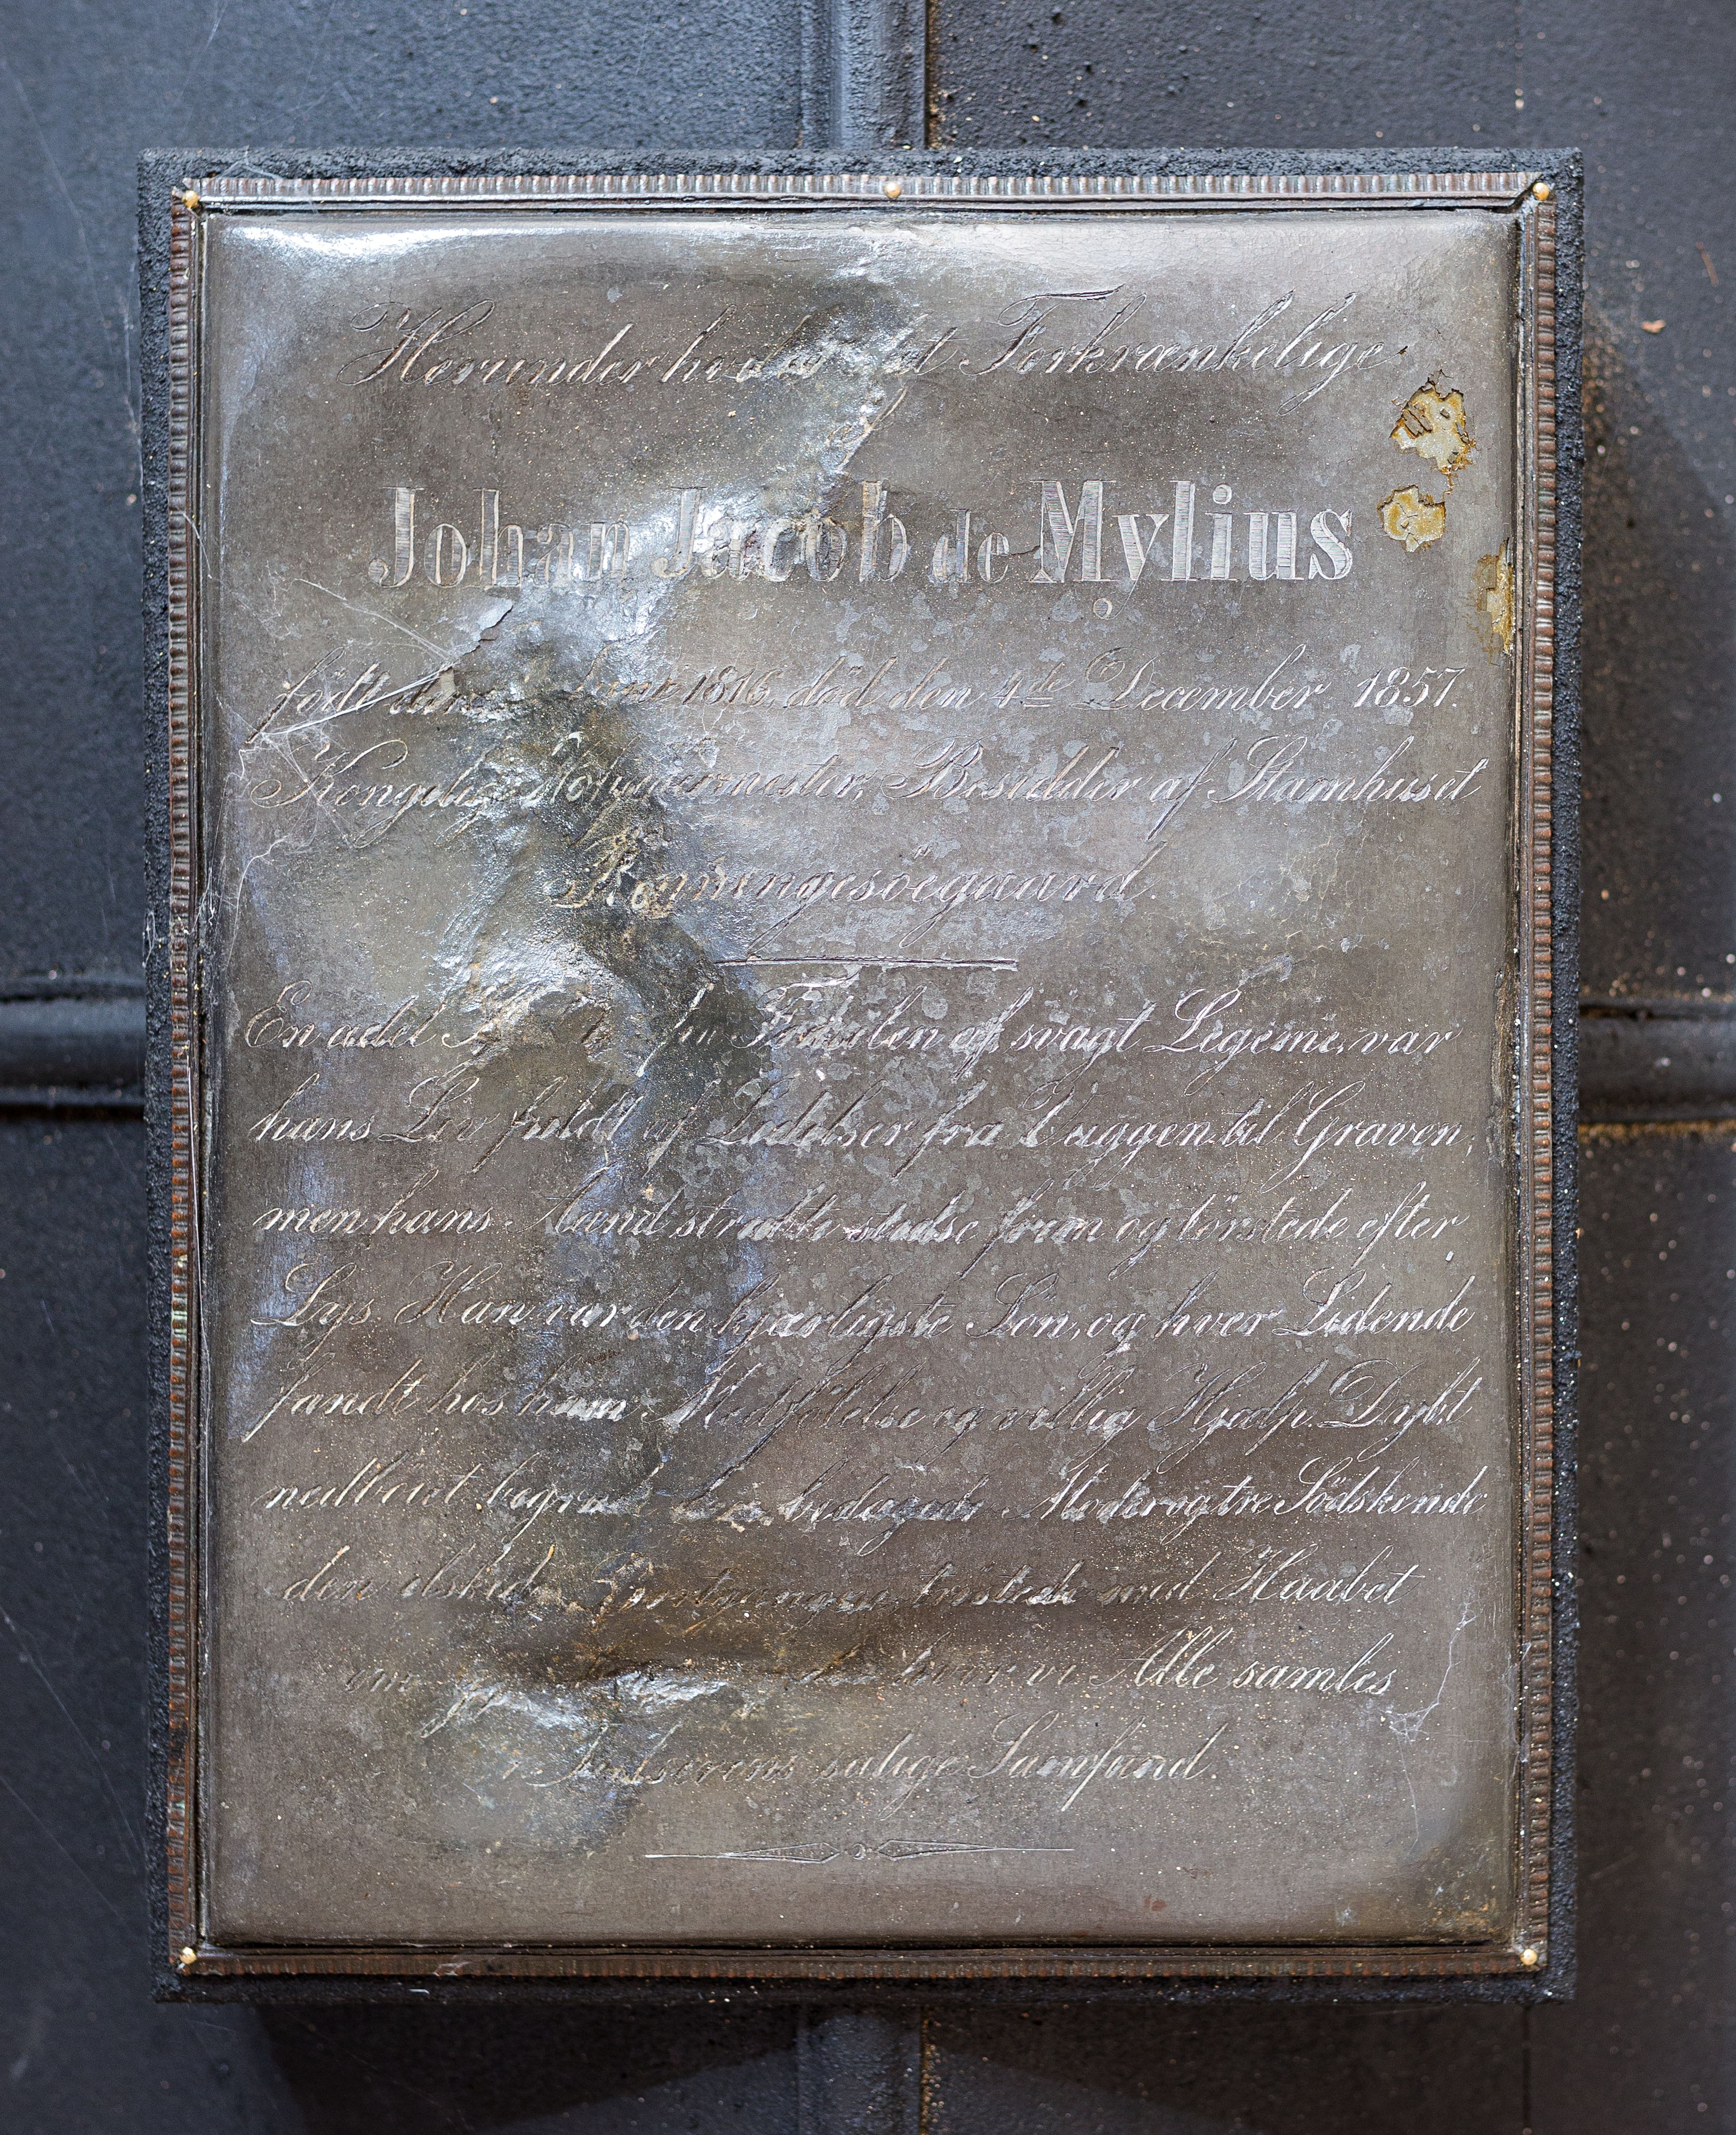 Herunder det Forkrænkelige
af
Johan Jacob de Mylius
født den Juni 1816, död den 4de December 1857.
Kongelig Hofjægermester, Besidder af Stamhuset
Rönningesöegaard.
En ædel Tabilen af svagt Legeme, var
hans Liv fuldt af Lidelser fra Vuggen til Graven,
men hans Aand stræbte stedse frem og törstede efter
Lys. Han var den kjærligste Sön, og hver Lidende
fandt hos ham Medfölelse og villig Hjælp. Dybt
nedböiet begræd bedagede Moder og tre Södskende
den elskede Bortgangne, tröstede med Haabet
om hvor vi Alle samles
i Frelserens salige Samfund.